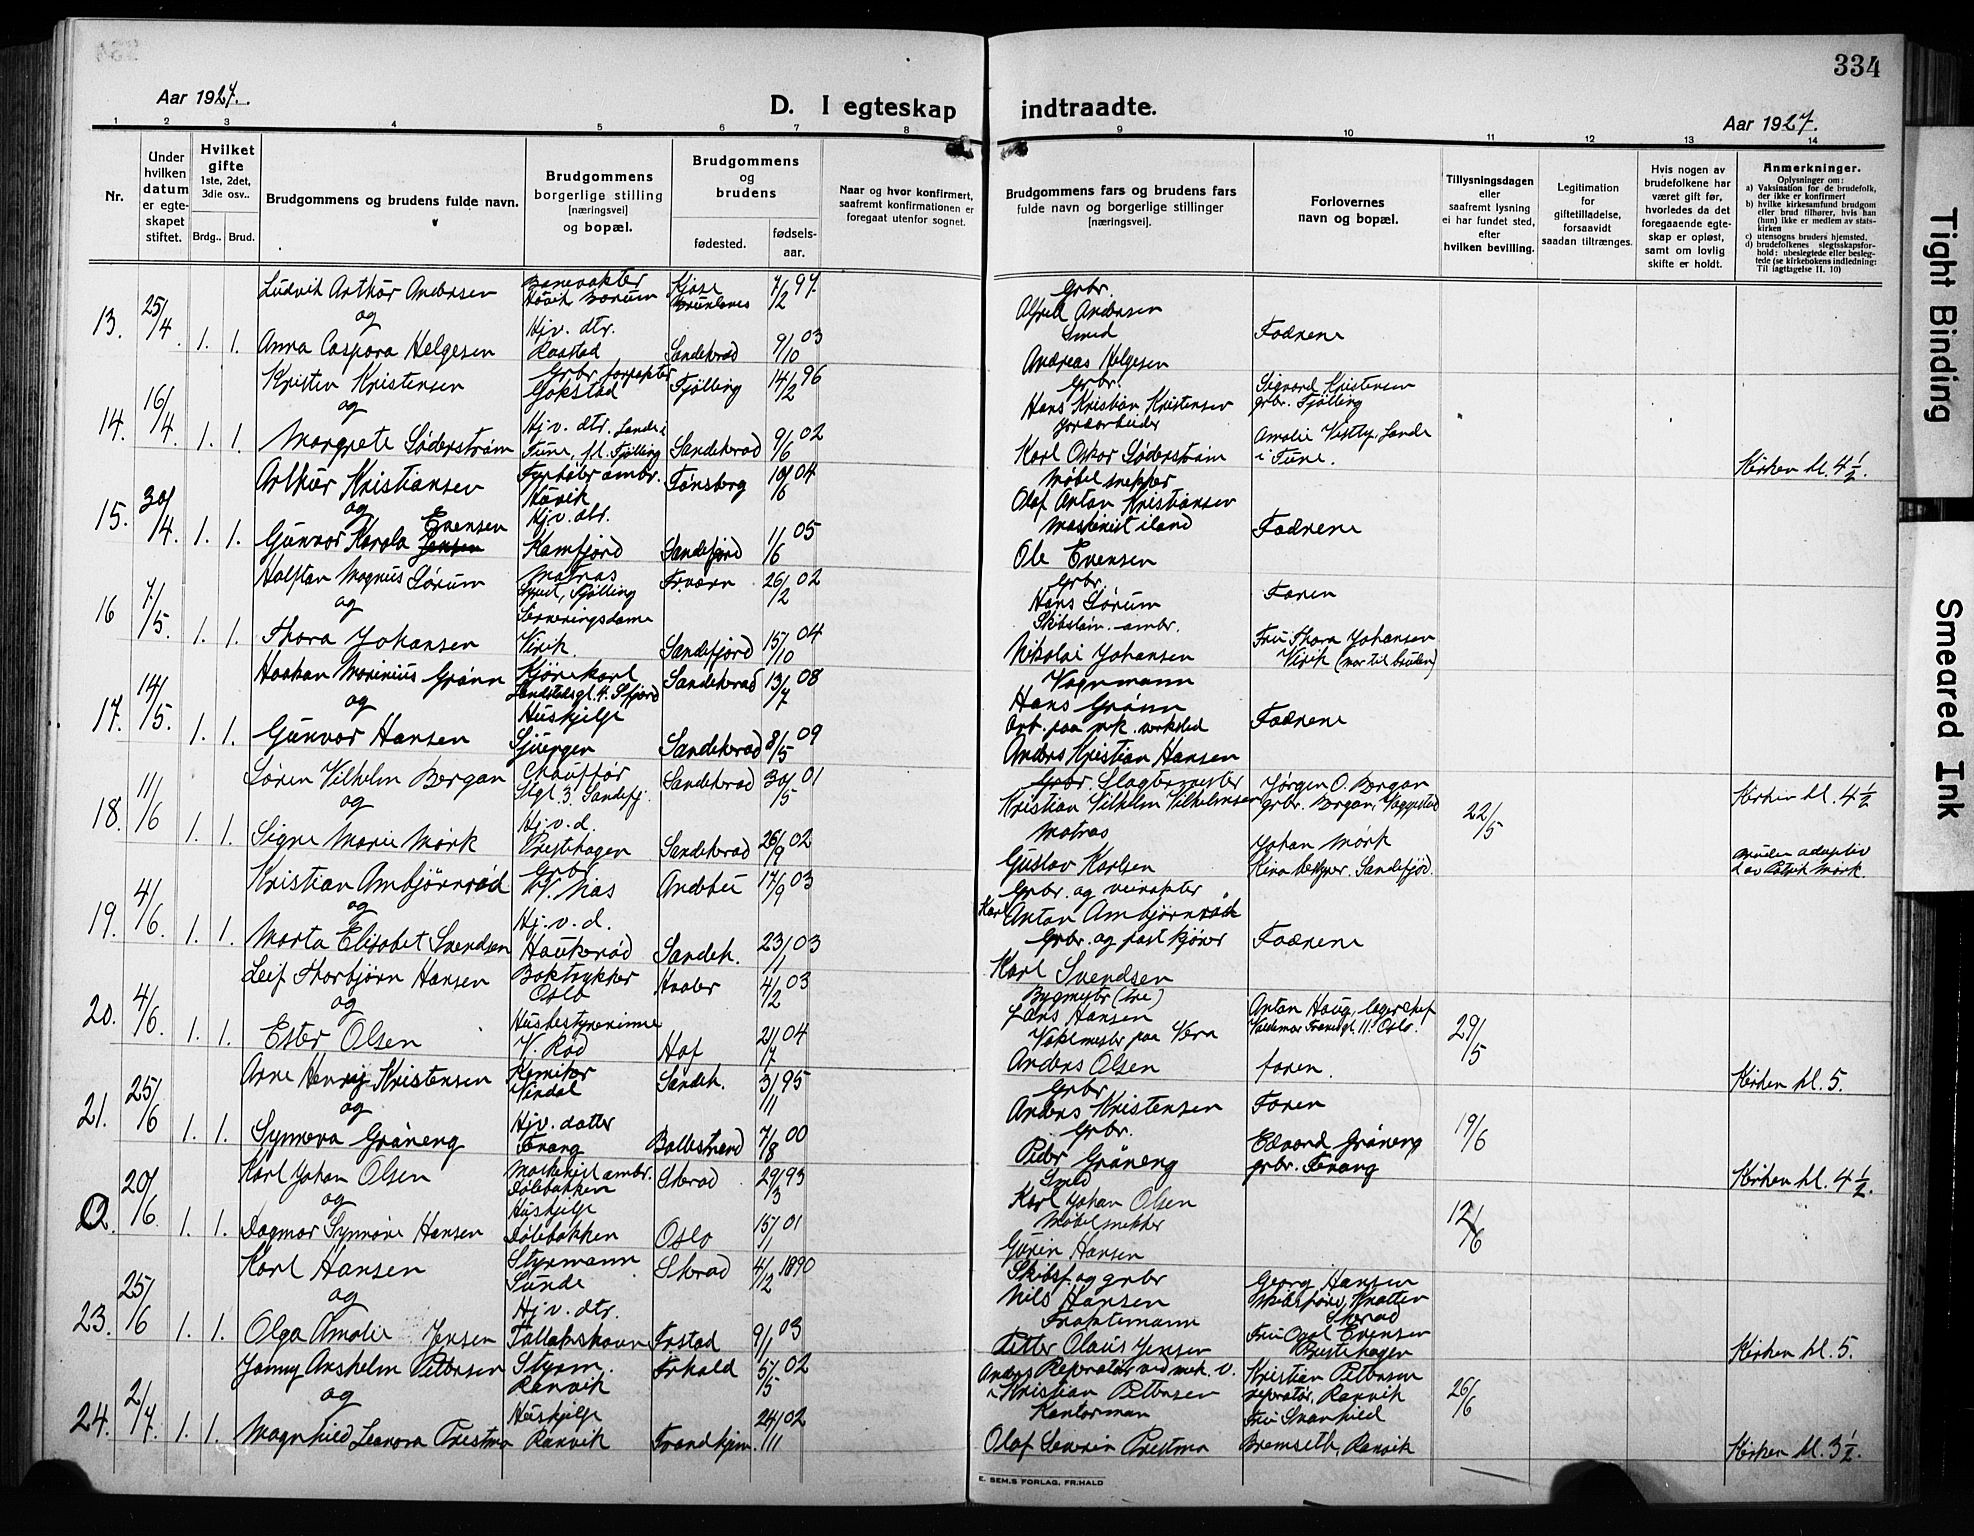 334
Aar 1927.
D. I egteskap indtraadte.
Aar 1927.
1 2 3 4 5 6 7 8 9 10 11 12 13 14
Nr.
Under hvilken datum er egte-skapet stiftet.
Hvilket gifte
1ste, 2det, 3die osv..
Brdg.. Brud.
Brudgommens og brudens fulde navn.
Brudgommens borgerlige stilling [næringsvei] og bopæl.
Brudgommens og brudens
fødested.
fødsels-aar.
Naar og hvor konfirmert, saafremt konfirmationen er foregaat utenfor sognet.
Brudgommens fars og brudens fars fulde navn og borgerlige stillinger [næringsvei].
Forlovernes navn og bopæl.
Tillysningsdagen eller saafremt lysning ei har fundet sted, efter hvilken bevilling.
Legitimation for giftetilladelse, forsaavidt saadan tiltrænges.
Hvis nogen av brudefolkene har været gift før, hvorledes da det foregaaende egte-skap er opløst, samt om lovlig skifte er holdt.
Anmerkninger.
Oplysninger om:
a) Vaksination for de brudefolk, der ikke er konfirmert
b) hvilke kirkesamfund brudgom eller brud tilhører, hvis han (hun) ikke er medlem av stats-kirken
c) utensogns bruders hjemsted.
d) brudefolkenes slegtsskapsfor-hold: ubeslegtede eller besleg-tede (se kirkebokens indledning: Til iagttagelse II. 10)
13. 25/4. 1. 1.
Ludvik Arthur Andersen
og
Anna Caspara Helgesen
Banevokter
Høvik Bærum
Hj.v. dtr.
Raastad
Kjose
Brunlanes
Sandeherad
7/2 97.
9/10 03
Grbr.
Alfred Andersen
Smed
Andreas Helgesen
Fædrene
14. 16/4. 1. 1.
Kristen Kristensen
og
Margrete Söderström
Grbr. forpakter
Gokstad
Hj.v. dtr. Sande i
Tune, fl. Tjølling
Tjølling
Sandeherad
14/2 96
9/6 02
Grbr.
Hans Kristian Kristensen
Jordarbeider
Karl Oskar Söderström
Sigvard Kristensen
grbr. Tjølling
Amalie Vestby, Sande
i Tune.
Kirken kl. 4 1/2.
15. 30/4. 1. 1.
Arthur Kristiansen
og
Gunvor Karola Jensen Evensen
Fyrbøter ambr.
Høvik
Hj.v. dtr.
Kamfjord
Tønsberg
Sandefjord
10/6 04
1/6 05
Møbelsnekker
Olaf Anton Kristiansen
Maskinist iland
Ole Evensen
Fædrene
16 7/5. 1. 1.
Halfdan Magnus Sørum
og
Thora Johansen
Matros
Tjølling
Serveringsdame
Virik.
Fr.værn
Sandefjord
26/2 02
15/10 04
Grbr.
Hans Sørum
Skibstøm. ambr.
Nikolai Johansen
Faren
Fru Thora Johansen
Virik (mor til bruden)
17. 14/5. 1. 1.
Haakon Marinius Grønn
og
Gunvor Hansen
Kjørekarl
Landstadsgt. 4. Sfjord
Hushjelp
Sjuengen
Sandeherad
Sandeherad
13/7 08
8/5 09
Vognmann
Hans Grønn
Arb. paa mk. verksted
Anders Kristian Hansen
Fædrene
18. 11/6 1. 1.
Søren Vilhelm Bergan
og
Signe Marie Mørk
Chauffør
Stgt. 3. Sandefj.
Hj.v.d.
Prestehagen
Sandeherad
Sandeherad
30/5 01
26/9 02
Grbr. Slagtermester
Kristian Vilhelm Vilhelmsen
Matros
Gustav Karlsen
Jørgen O. Bergan
grbr. Bergan, Vaggestad
Johan Mørk
Kino bestyrer. Sandefjord.
22/5
Kirken kl. 4 1/2
Bruden adoptiv
d. av Patrik Mørk.
19. 4/6. 1. 1.
Kristian Ambjörnrød
og
Marta Elisabet Svendsen
Grbr
V. Nas
Hj.v.d.
Haukerød
Andebu
Sandeh.
17/9 03
23/1 03
Grbr. og veivokter
Karl Anton Ambjörnrød
Grbr. og post kjører
Karl Svendsen
Fædrene
20. 4/6. 1. 1.
Leif Thorbjørn Hansen
og
Ester Olsen
Boktrykker
Oslo
Husbestyrerinne
V. Rød
Hvaler
Hof
4/2 03
21/7 04
Bygmestr (tre)
Lars Hansen
Vaktmester paa Vera
Anders Olsen
Anton Haug, lagerchef
Valdemar Thranesgt. 11. Oslo.
faren.
29/5
Kirken kl. 5.
21. 25/6 1. 1.
Arne Henrij Kristensen
og
Synneva Grøneng
Kemiker
Vindal
Hjv. datter
Fevang
Sandeh.
Balestrand
3/11 95
7/8 00
Grbr
Anders Kristensen
Grbr.
Peder Grøneng
Faren
Edvard Grøneng
grbr. Fevang
19/6
Kirken kl. 4 1/2.
22. 20/6. 1. 1.
Karl Johan Olsen
og
Dagmar Synnøve Hansen
Maskinist ambr.
Dølebakken
Hushjelp
Dølebakken
Sherad
Oslo
29/3 93
15/1 01
Smed
Karl Johan Olsen
Møbelsnekker
Gurin Hansen
12/6
23. 25/6 1. 1.
Karl Hansen
og
Olga Amalie Jensen
Styrmann
Sunde
Hj.v. dtr.
Tallakshavn
Sherad
Tustad
4/12 1890
9/1 03
Skibsf. og grbr
Nils Hansen
Fragtemann
Petter Olaus Jensen
Georg Hansen
skibsfører, Knatten
Sherad
Fru Opal Evensen
Prestehagen
Kirken kl. 5.
24. 2/7. 1. 1.
Jonny Anshelm Pettersen
og
Magnhild Leonora Prestmo
Styrm.
Ranvik
Hushjelp
Ranvik
Frhald
Trondhjem.
5/5 02
24/11 02
Reperatør ved mek. v.
Anders Kristian Pettersen
Kontorman
Olaf Severin Prestmo
Kristian Pettersen
reperatør, Ranvik
Fru Svanhild
Bremseth, Ranvik
26/6
Kirken kl. 3 1/2.
E. SEM.S FORLAG, FR.HALD
Tight Binding
Smeared Ink